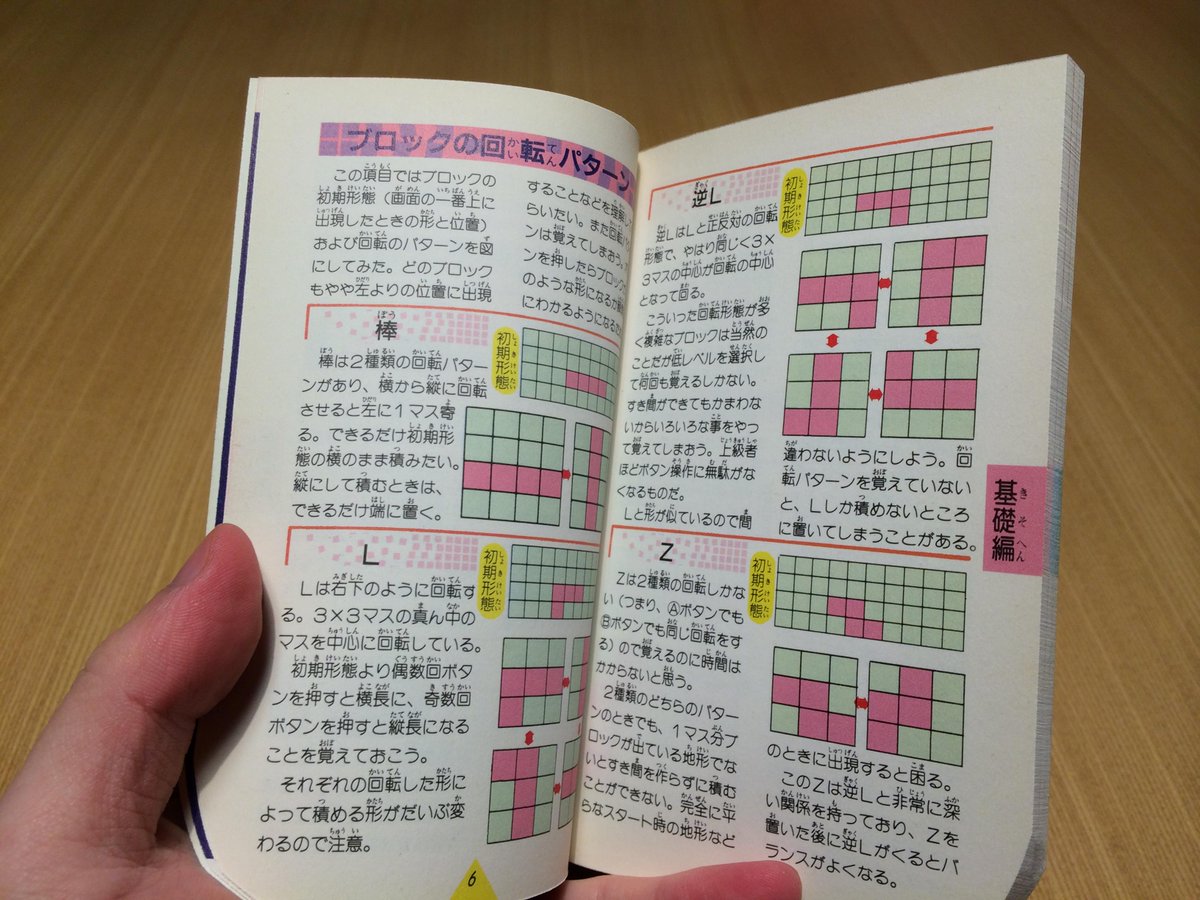 ブロックの回転パターン
この項目ではブロックの
初期形態（画面の一番上に
出現したときの形と位置）
および回転のパターンを図
にしてみた。どのブロック
もやや左よりの位置に出現
することなどを理解し
らいたい。また回転パ
ンは覚えてしまう。
ンを押したらブロック
のような形になるか
にわかるようになる
棒
初期形態
棒は2種類の回転パター
ンがあり、横から縦に回転
させると左に1マス寄
る。できるだけ初期形
態の横のまま積みたい。
縦にして積むときは、
できるだけ端に置く。
L
初期形態
Lは右下のように回転す
る。3×3マスの真ん中の
マスを中心に回転している。
初期形態より偶数回ボタ
ンを押すと横長に、奇数回
ボタンを押すと縦長になる
ことを覚えておこう。
それぞれの回転した形に
よって積める形がだいぶ変
わるので注意。
6
逆L
初期形態
逆LはLと正反対の回転
形態で、やはり同じく3×
3マスの中心が回転の中心
となって回る。
こういった回転形態が多
く複雑なブロックは当然の
ことだが低レベルを選択し
て何回も覚えるしかない。
すき間ができてもかまわな
いからいろいろな事をやっ
て覚えてしまおう。上級者
ほどボタン操作に無駄がな
くなるものだ。
Lと形が似ているので間
違わないようにしよう。回
転パターンを覚えていない
と、Lしか積めないところ
に置いてしまうことがある。
基礎編
Z
初期形態
Zは2種類の回転しかな
い（つまり、Ⓐボタンでも
Ⓑボタンでも同じ回転をす
る）ので覚えるのに時間は
かからないと思う。
2種類のどちらのパター
ンのときでも、1マス分ブ
ロックが出ている地形でな
いとすき間を作らずに積む
ことができない。完全に平
らなスタート時の地形など
のときに出現すると困る。
このZは逆Lと非常に深
い関係を持っており、Zを
置いた後に逆Lがくるとバ
ランスがよくなる。